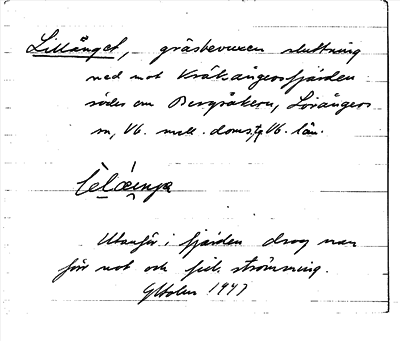 Lillänget, gräsbevuxen sluttning
ned mot Kråkångersfjärden
söder om Bergsåkern, Lövångers
sn, Vb. mell. doms. Vb. län.
Utanför i fjärden drog man
förr not och fick strömming.
GHolm 1947